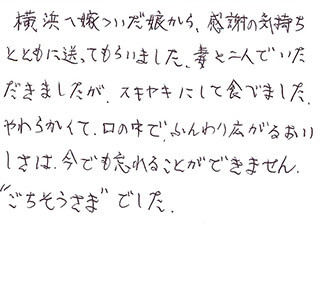 横浜へ嫁ついだ娘から、感謝の気持ち
とともに送ってもらいました。妻と二人でいた
だきましたが、スキヤキにして食べました。
やわらかくて、口の中で、ふんわり広がるおい
しさは、今でも忘れることができません。
"ごちそうさま"でした。